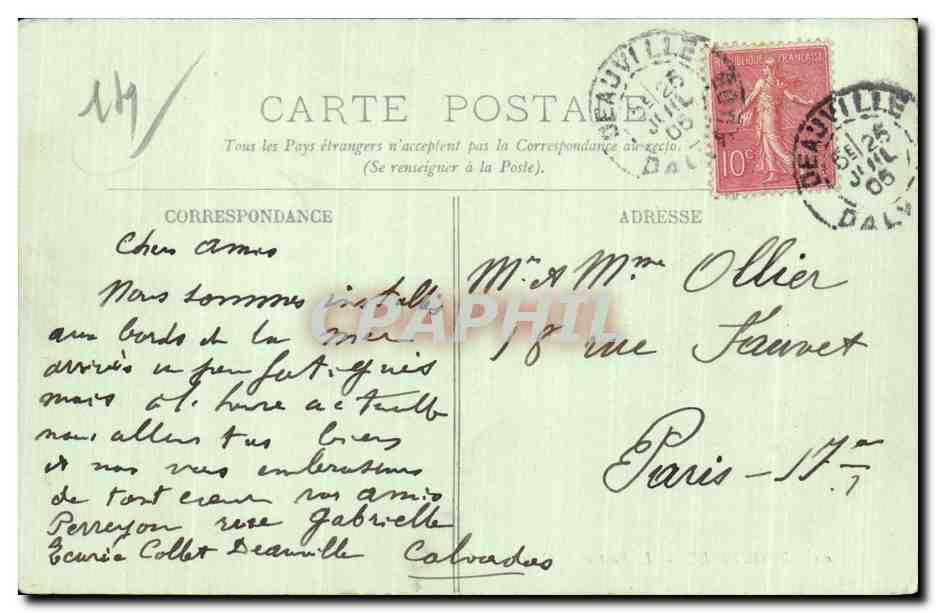 149
CARTE POSTALE
Tous les Pays étrangers n'acceptent pas la Correspondance au recto.
(Se renseigner à la Poste).
DEAUVILLE
6E 25
JUIL
05
CALVADOS
REPUBLIQUE FRANÇAISE
10c
DEAUVILLE
6E 25
JUIL
05
CALV
CORRESPONDANCE
ADRESSE
Chers amis
Nous sommes installés
aux bords de la mer
arrivés un peu fatigués
mais à l'heure actuelle
nous allons tous biens
et nous vous embrassons
de tout cœur vos amis
Perreyon rue Gabrielle
Ecurie Collet Deauville Calvados
Mr & Mme Ollier
18 rue Fauvet
Paris - 17
CPAPHIL